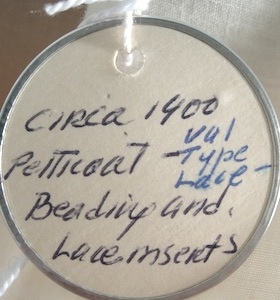 Circa 1900
Petticoat - Val
Type
Lace -
Beading and
Lace inserts